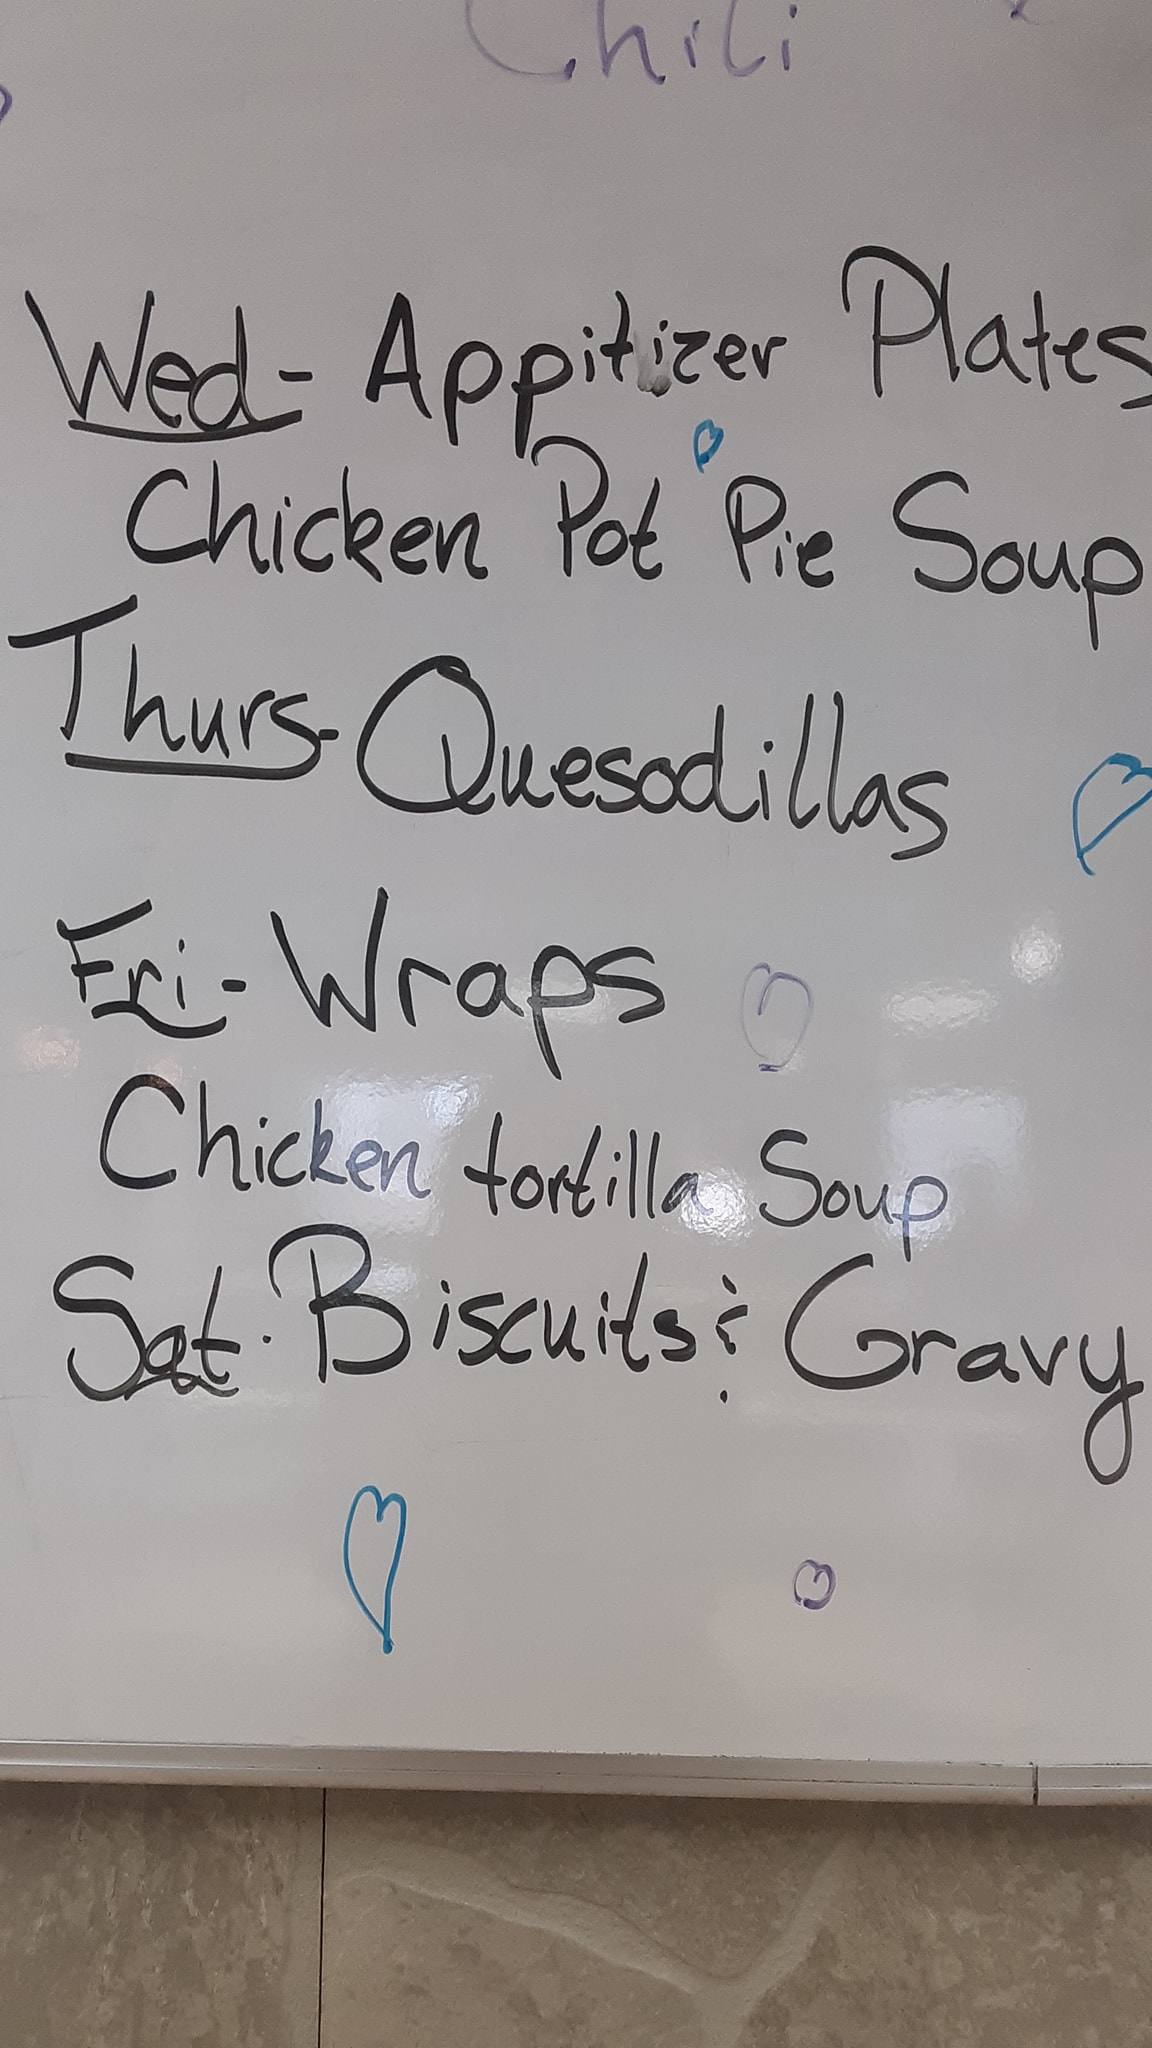 Chili
Wed- Appitizer Plates
Chicken Pot Pie Soup
Thurs- Quesodillas
Fri- Wraps
Chicken tortilla Soup
Sat. Biscuits & Gravy